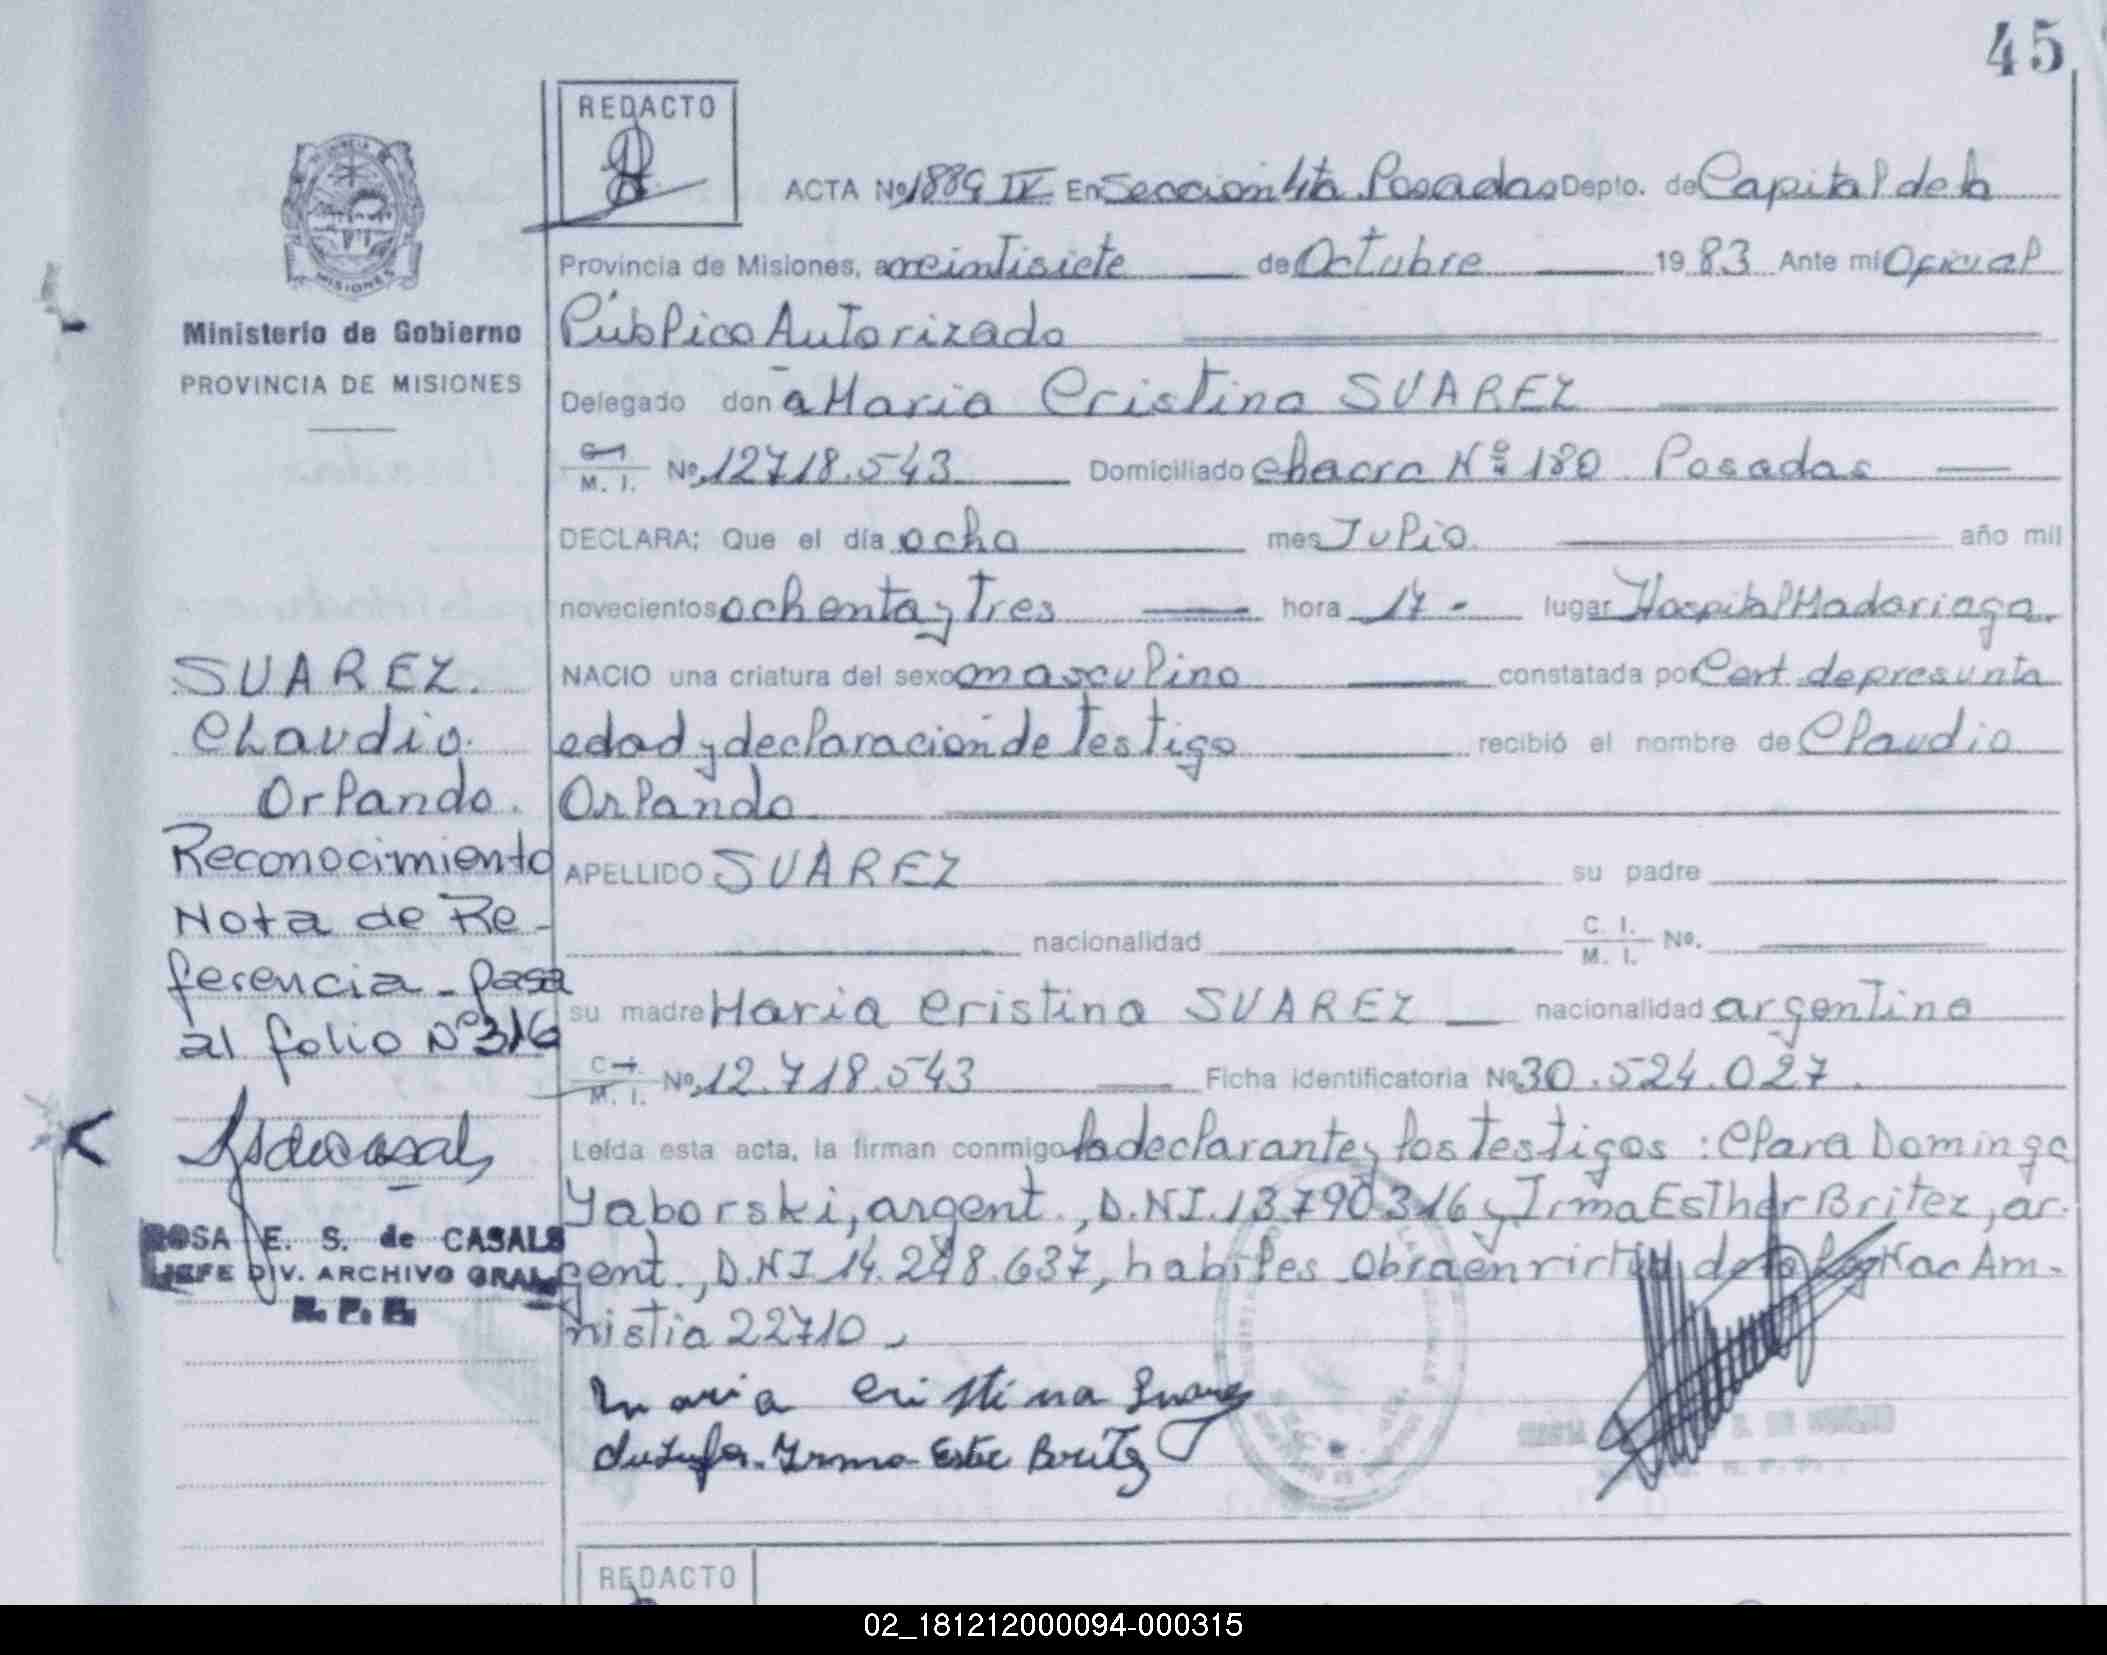 45
REDACTO
ACTA Nº 1889 IV En Seccion 4ta Posadas Depto. de Capital de la
Provincia de Misiones, a veintisiete de Octubre 1983 Ante mi Oficial
Público Autorizado
Ministerio de Gobierno
PROVINCIA DE MISIONES
Delegado don a Maria Cristina SUAREZ
C. I. M. I. Nº 12718.543 Domiciliado chacra Nº 180 Posadas
DECLARA: Que el día ocho mes Julio año mil
novecientos ochenta y Tres hora 17- lugar Hospital Madariaga.
NACIO una criatura del sexo masculino constatada por Cert. de presunta
edad y declaracion de Testigo recibió el nombre de Claudio
Orlando
APELLIDO SUAREZ su padre
nacionalidad C. I. M. I. Nº.
su madre Maria Cristina SUAREZ nacionalidad argentina
C. I. M. I. Nº 12.718.543 Ficha identificatoria Nº 30.524.027.
Leída esta acta, la firman conmigo la declarante y los Testigos: Clara Dominga
Yaborski, argent., D.NI.13790316 y Irma Esther Britez, ar-
gent., D.NI 14.248.637, habiles Obra en virtud de la Ley Nac Am-
nistia 22710,
Maria Cristina Suarez
Irma Ester Britez
SUAREZ.
Claudio.
Orlando.
Reconocimiento
Nota de Re-
ferencia - pasa
al folio Nº 316
ROSA E. S. de CASALS
JEFE DIV. ARCHIVO GRAL.
R. P. P.
REDACTO
02_181212000094-000315